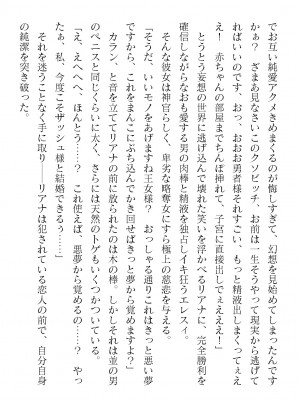 でお互い純愛アクメきめまくるのが悔しすぎて、幻想を見始めてしまったです
かぁ？　ざまあ見なさいこのクソビッチ、お前は一生そうやって現実から逃げて
ればいいのです、おっ、おおお勇者様それすごい、もっと精液出しまくってぇえ
え！　赤ちゃんの部屋までちんぽ挿れて、子宮に直出してぇえええ！」
　とうとう妄想の世界に逃げ込んで壊れた笑いを浮かべるリアナに、完全勝利を
確信しながらなおも愛する男の肉棒と精液を独占しイキ狂うエレスィ。
　そんな彼女は神官らしく、卑劣な略奪女にすら極上の慈悲を与える。
「そうだ、いいモノをあげますね王女様？　おっしゃる通りこれはきっと悪い夢
ですから、これをまんこにぶち込んでかき回せばきっと夢から覚めますよ？」
　カラン、と音を立ててリアナの前に放られたのは木の棒。しかしそれは並の男
のペニスと同じくらいに太く、さらには天然のトゲもいくつかついている。
「え、えへへへ、ほんとう……？　これ使えば、悪夢から覚めるの……？　やっ
た、私、今度こそザッシュ様と結婚できるぅ……」
　それを迷うことなく手に取り――リアナは犯されている恋人の前で、自分自身
の純潔を突き破った。